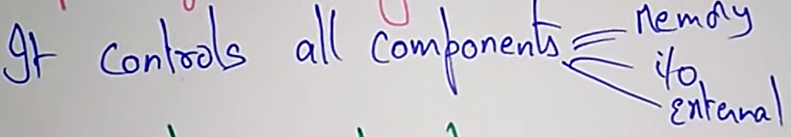 It controls all components
Memory
i/o
external